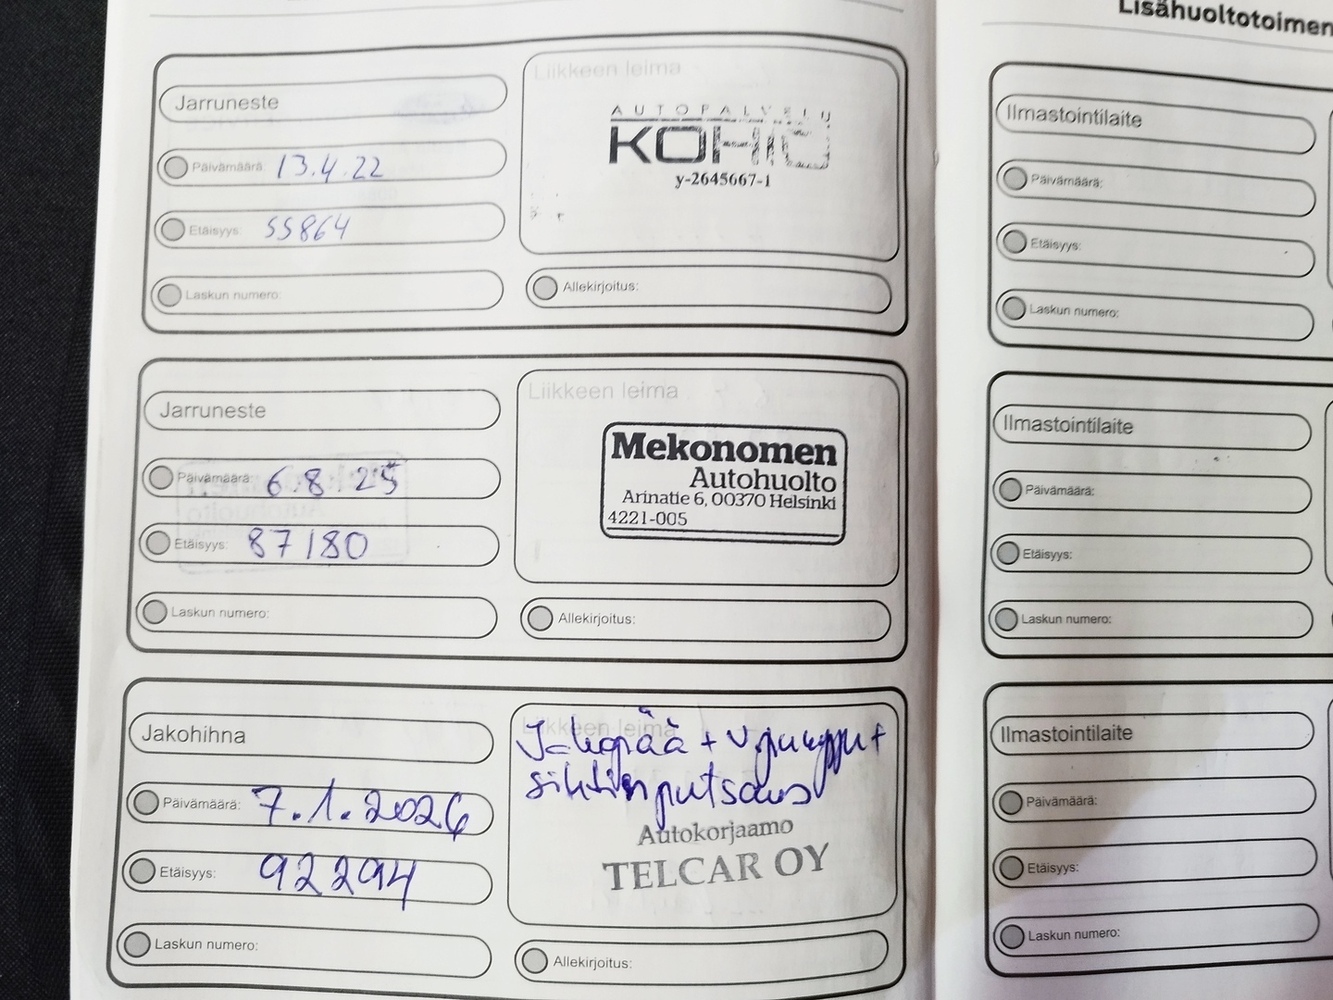 Lisähuoltotoimen
Jarruneste
Päivämäärä: 13.4.22
Etäisyys: 55864
Laskun numero:
Liikkeen leima
AUTOPALVELU
KOHO
y-2645667-1
Allekirjoitus:
Jarruneste
Päivämäärä: 6.8.25
Etäisyys: 87180
Laskun numero:
Liikkeen leima
Mekonomen
Autohuolto
Arinatie 6, 00370 Helsinki
4221-005
Allekirjoitus:
Jakohihna
Päivämäärä: 7.1.2026
Etäisyys: 92294
Laskun numero:
Liikkeen leima
J-kopää + v.pumppu +
putsaus
Autokorjaamo
TELCAR OY
Allekirjoitus:
Ilmastointilaite
Päivämäärä:
Etäisyys:
Laskun numero:
Ilmastointilaite
Päivämäärä:
Etäisyys:
Laskun numero:
Ilmastointilaite
Päivämäärä:
Etäisyys:
Laskun numero: